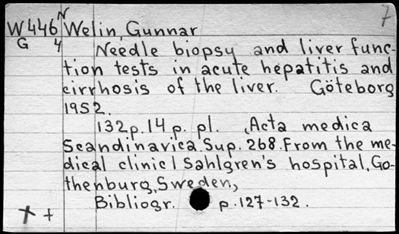 7
W446N Welin, Gunnar
G 4 Needle biopsy and liver func-
tion tests in acute hepatitis and
cirrhosis of the liver. Göteborg
1952.
132 p. 14 p. pl. Acta medica
Scandinavica. Sup. 268. From the me-
dical clinic I Sahlgren's hospital, Go-
thenburg, Sweden,
Bibliogr. p. 127-132.